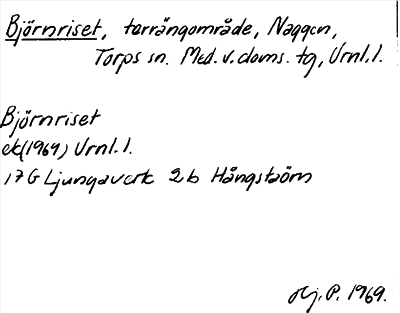 Björnriset, terrängområde, Naggen,
Torps sn. Med. v. doms. tg, Urnl. 1.
Björnriset
ek(1969) Urnl. 1.
17 G Ljungaverk 2b Hångstaörn
Hj. P. 1969.